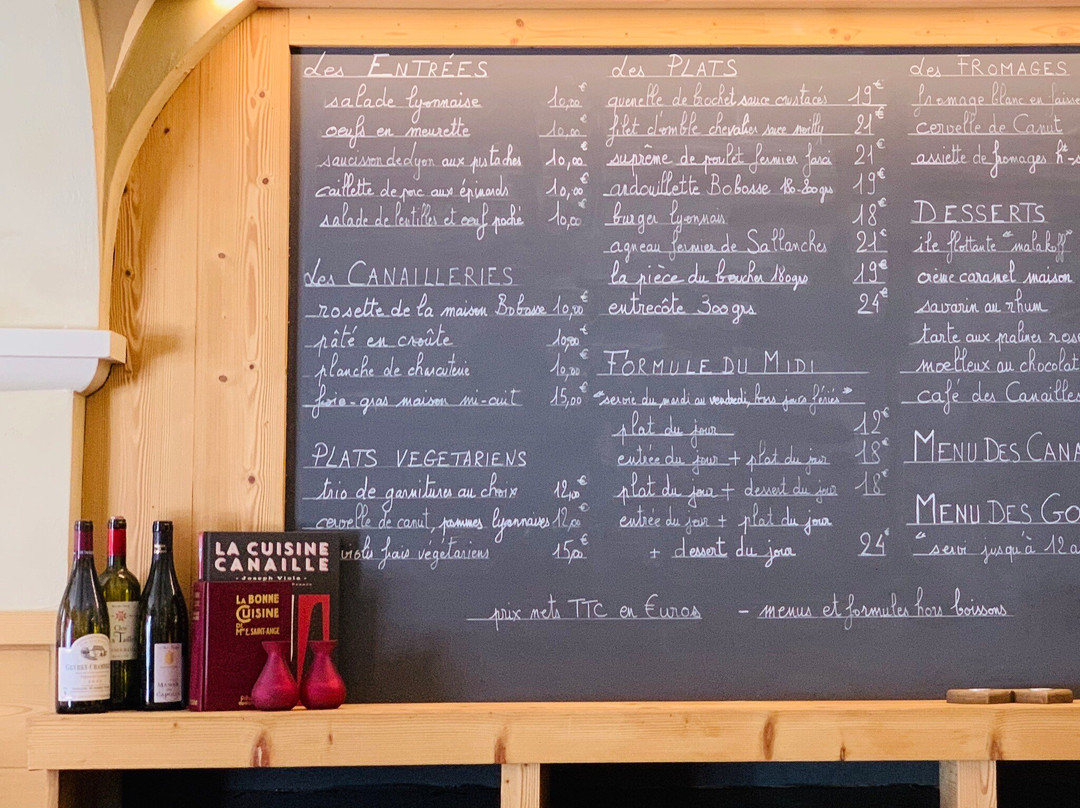 Les ENTRÉES
salade lyonnaise 10,00€
oeufs en meurette 10,00€
saucisson de lyon aux pistaches 10,00€
caillette de porc aux épinards 10,00€
salade de lentilles et oeuf poché 10,00€
Les CANAILLERIES
rosette de la maison Bobosse 10,00€
pâté en croûte 10,00€
planche de charcuterie 10,00€
foie-gras maison mi-cuit 15,00€
PLATS VEGETARIENS
trio de garnitures au choix 12,00€
cervelle de canut, pommes lyonnaises 12,00€
frais végétariens 15,00€
Les PLATS
quenelle de brochet sauce crustacés 19€
filet d'omble chevalier sauce noilly 21€
suprême de poulet fermier farci 21€
andouillette Bobosse 180-200grs 19€
burger lyonnais 18€
agneau fermier de Sallanches 21€
la pièce du boucher 180grs 19€
entrecôte 300grs 24€
FORMULE DU MIDI
"servie du mardi au vendredi, hors jours fériés"
plat du jour 12€
entrée du jour + plat du jour 18€
plat du jour + dessert du jour 18€
entrée du jour + plat du jour
+ dessert du jour 24€
Les FROMAGES
fromage blanc en faisse
cervelle de Canut
assiette de fromages
DESSERTS
île flottante "malakoff"
crème caramel maison
savarin au rhum
tarte aux pralines
moelleux au chocolat
café des Canailles
MENU DES CANA
MENU DES GO
"servi jusqu'à 12 a
prix nets TTC en €uros - menus et formules hors boissons
LA CUISINE
CANAILLE
Joseph Viola
LA BONNE
CUISINE
DE
Mme E. SAINT-ANGE